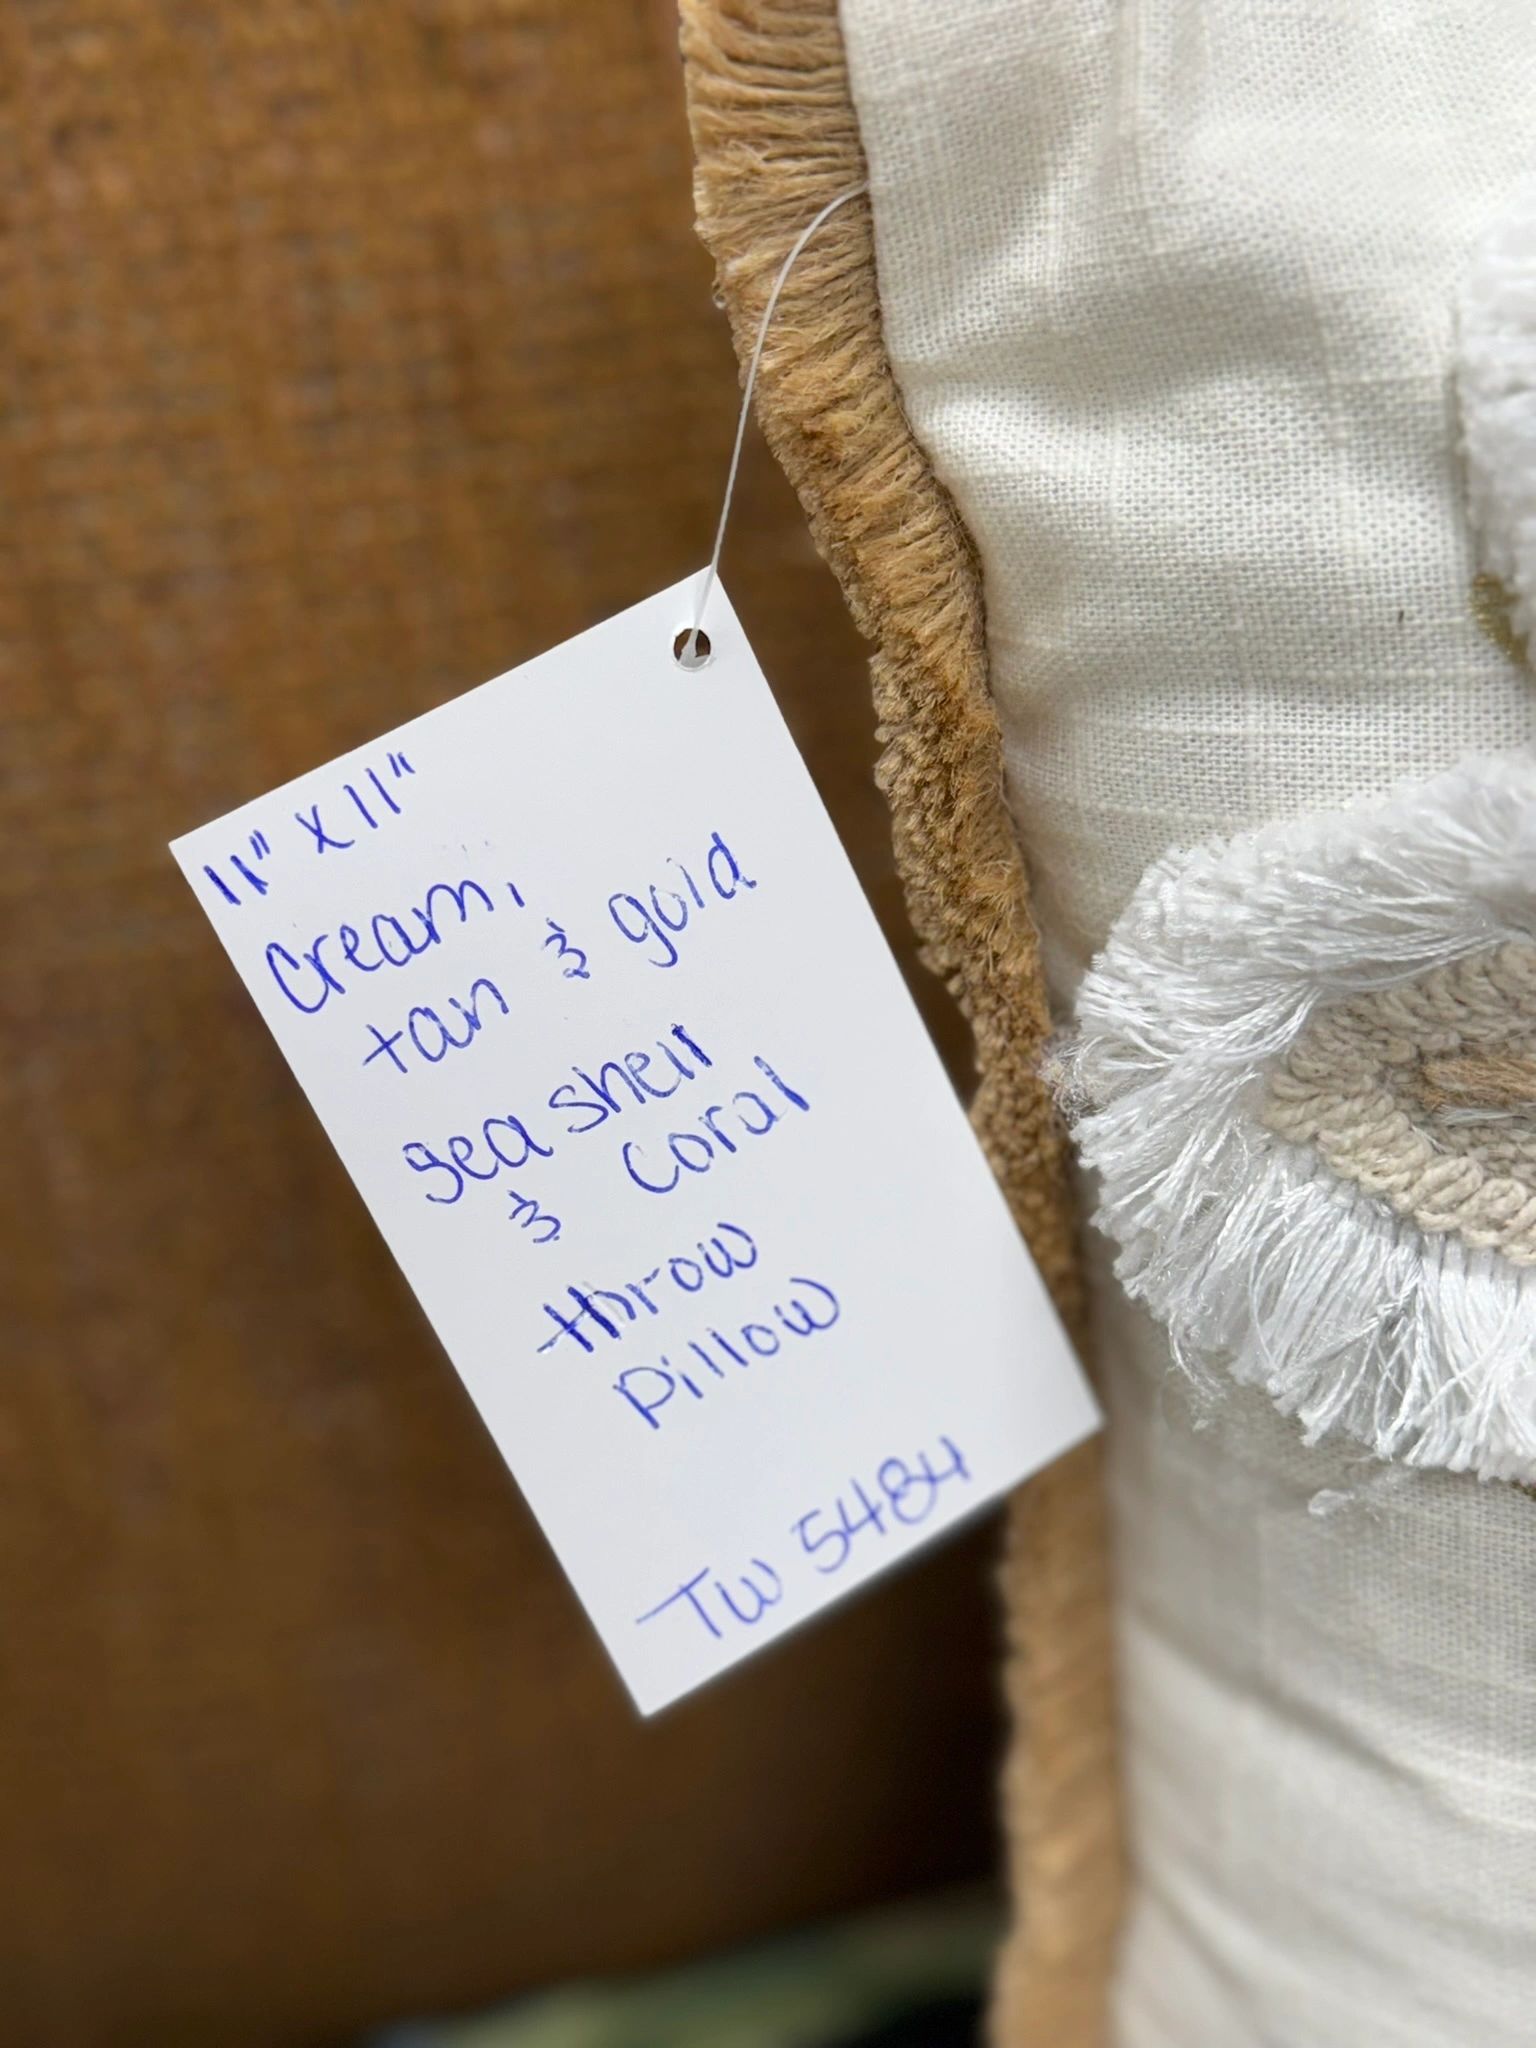 11" x 11"
Cream,
tan & gold
sea shell
& coral
throw
pillow
TW 5484